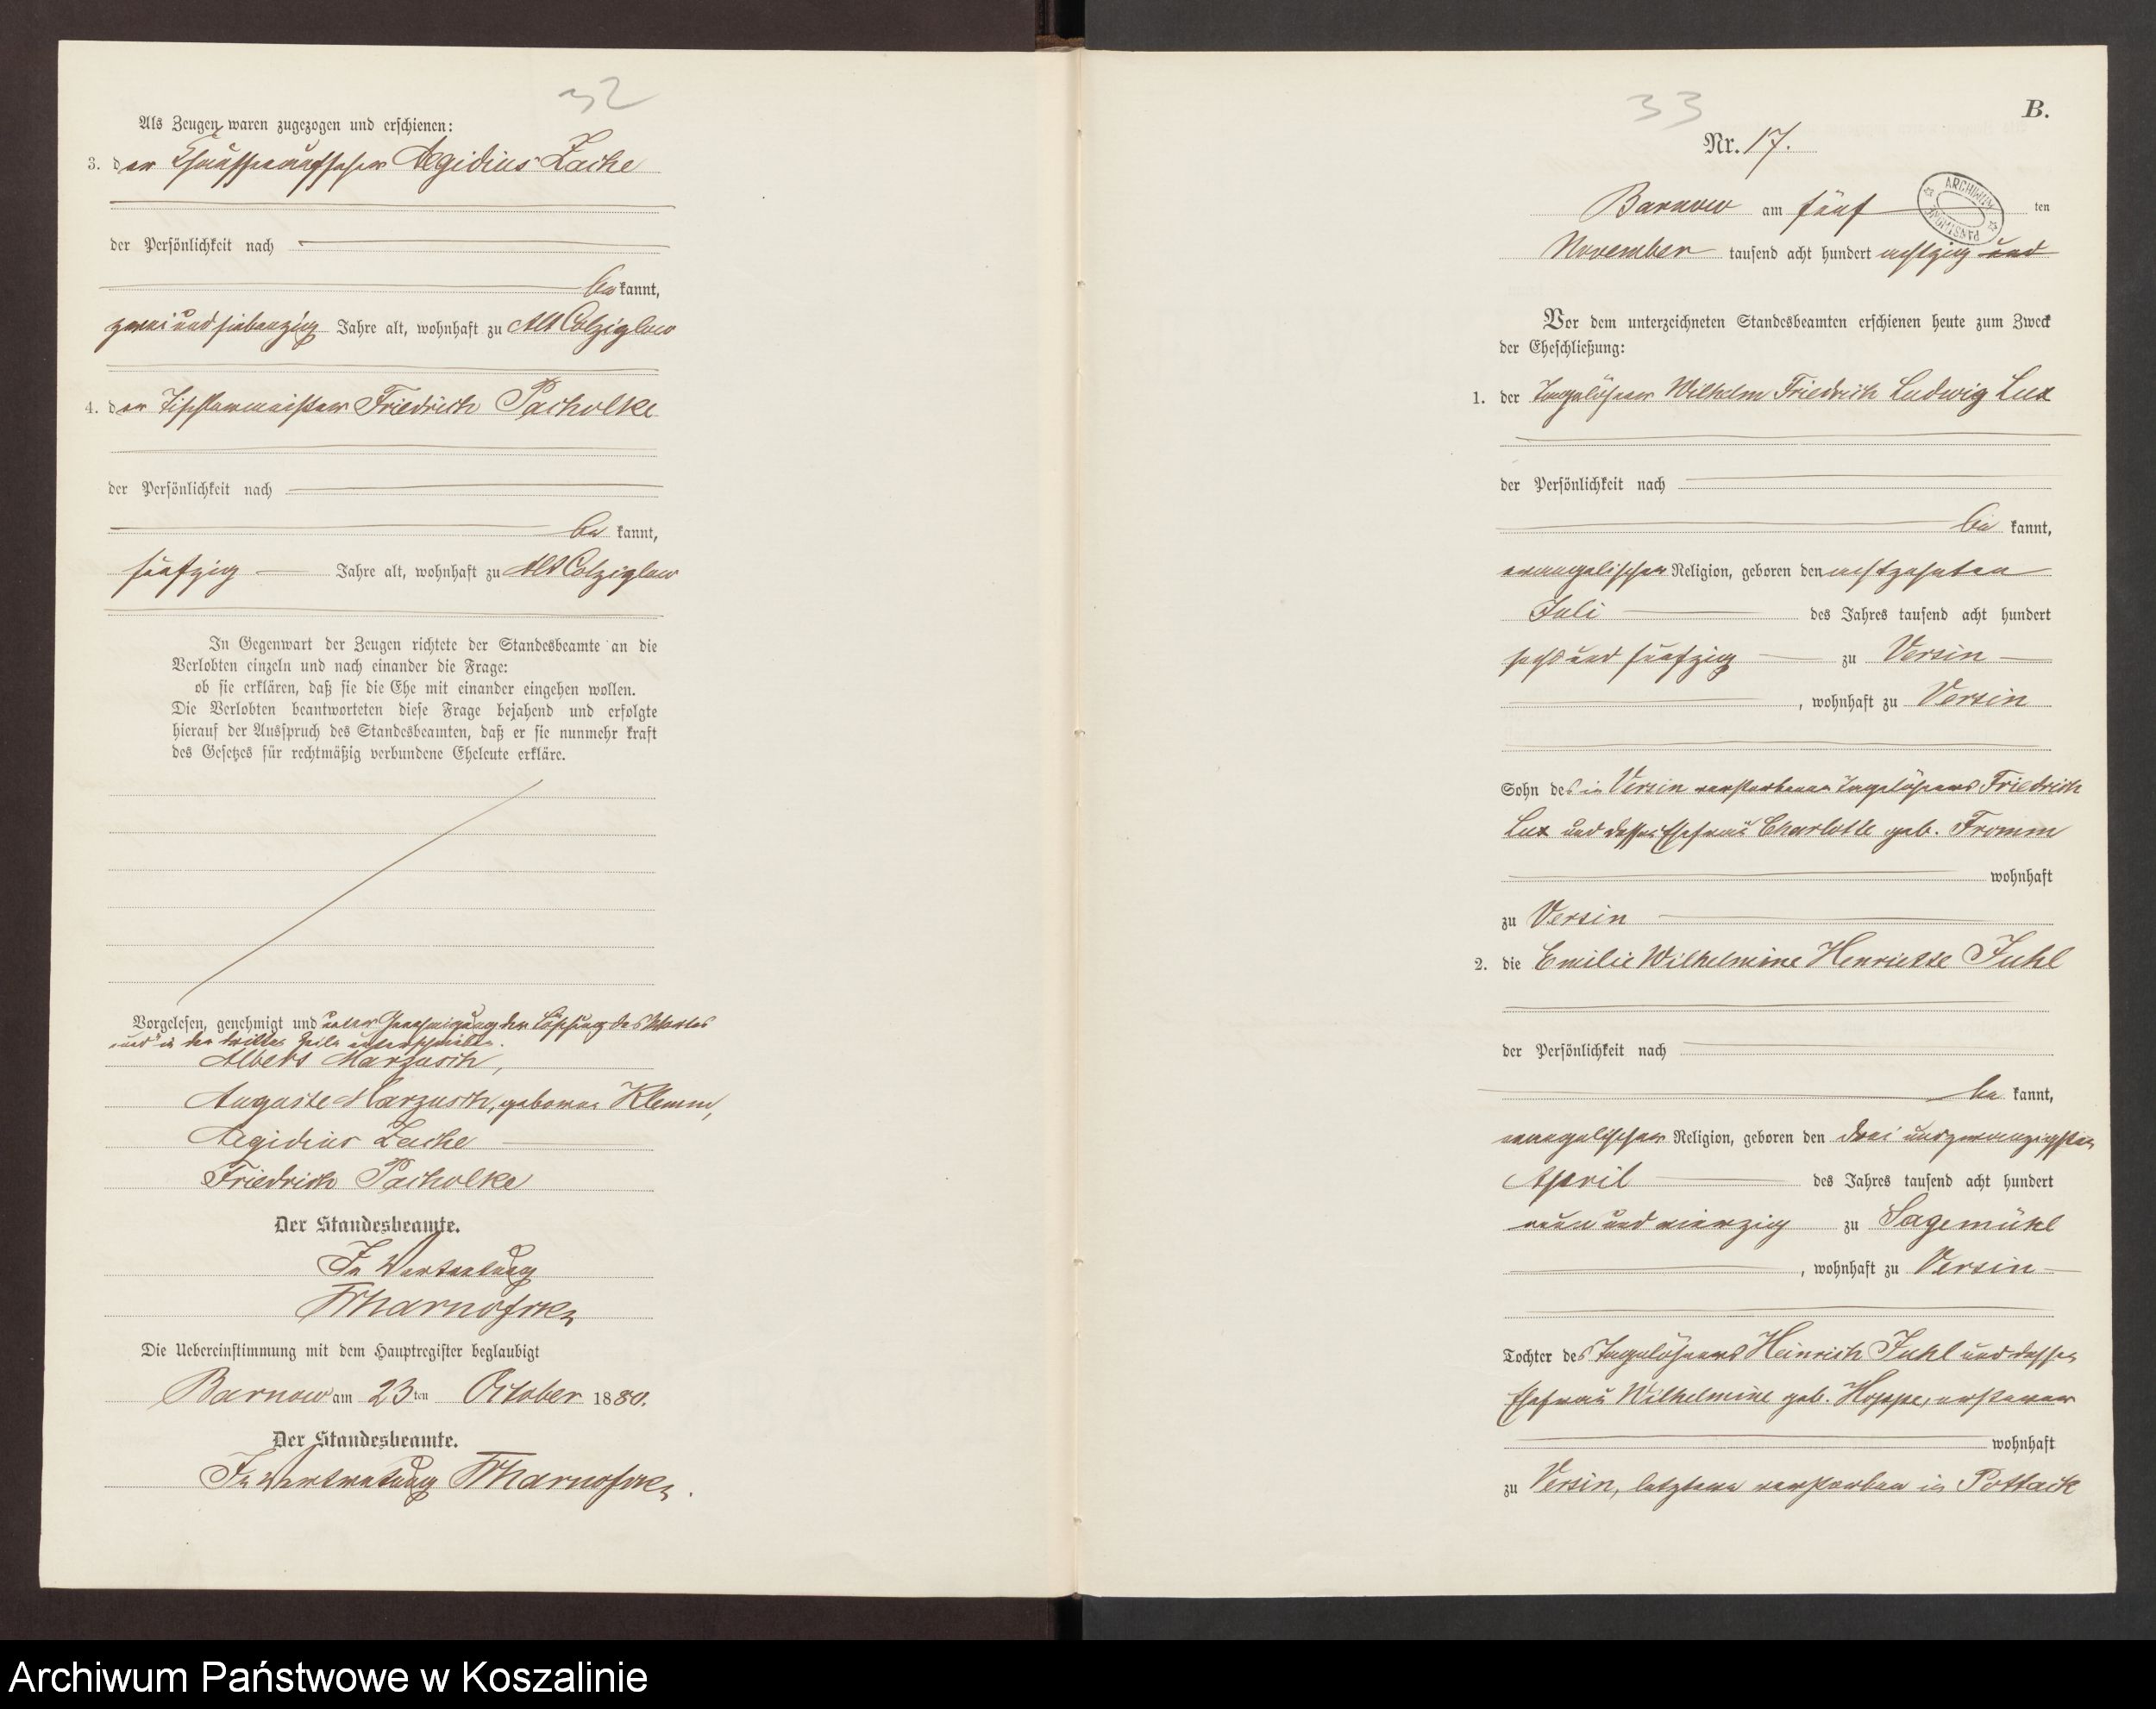 32
Als Zeugen waren zugezogen und erschienen:
3. der Chausseeaufseher Aegidius Zache
der Persönlichkeit nach
bekannt,
zwei und siebenzig Jahre alt, wohnhaft zu Alt Colziglow
4. der Tischlermeister Friedrich Pacholke
der Persönlichkeit nach
be kannt,
fünfzig Jahre alt, wohnhaft zu Alt Colziglow
In Gegenwart der Zeugen richtete der Standesbeamte an die
Verlobten einzeln und nach einander die Frage:
ob sie erklären, daß sie die Ehe mit einander eingehen wollen.
Die Verlobten beantworteten diese Frage bejahend und erfolgte
hierauf der Ausspruch des Standesbeamten, daß er sie nunmehr kraft
des Gesetzes für rechtmäßig verbundene Eheleute erkläre.
Vorgelesen, genehmigt und unter Genehmigung der Löschung des Wortes
"und" in der dritten Zeile unterschrieben.
Albert Marzusch,
Auguste Marzusch, geborene Klemm,
Aegidius Zache
Friedrich Pacholke
Der Standesbeamte.
In Vertretung
Die Uebereinstimmung mit dem Hauptregister beglaubigt
Barnow am 23ten October 1880.
Der Standesbeamte.
In Vertretung
33
B.
Nr. 17.
Barnow am fünf ten
November tausend acht hundert achtzig und
Vor dem unterzeichneten Standesbeamten erschienen heute zum Zweck
der Eheschließung:
1. der Tagelöhner Wilhelm Friedrich Ludwig Lux
der Persönlichkeit nach
be kannt,
evangelischer Religion, geboren den achtzehnten
Juli des Jahres tausend acht hundert
sechs und fünfzig zu Versin
, wohnhaft zu Versin
Sohn des in Versin verstorbenen Tagelöhners Friedrich
Lux und dessen Ehefrau Charlotte geb. Fromm
wohnhaft
zu Versin
2. die Emilie Wilhelmine Henriette Juhl
der Persönlichkeit nach
be kannt,
evangelischer Religion, geboren den drei und zwanzigsten
April des Jahres tausend acht hundert
neun und vierzig zu Sagemühl
, wohnhaft zu Versin
Tochter des Tagelöhners Heinrich Juhl und dessen
Ehefrau Wilhelmine geb. Hoppe, ersterer
wohnhaft
zu Versin, letztere verstorben in Pottack
ARCHIWUM PAŃSTWOWE
Archiwum Państwowe w Koszalinie